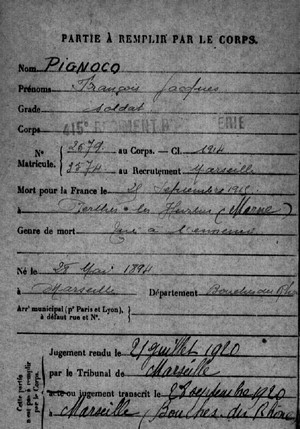 PARTIE À REMPLIR PAR LE CORPS.
Nom PIGNOCO
Prénoms François Jacques
Grade soldat
Corps 415e RÉGIMENT D'INFANTERIE
N° 2679 au Corps. — Cl. 1914
Matricule. 3574 au Recrutement Marseille
Mort pour la France le 28 Septembre 1915
à Perthes-les-Hurlus (Marne)
Genre de mort Tué à l'ennemi
Né le 25 Mai 1894
à Marseille Département Bouches du Rhône
Arr' municipal (pr Paris et Lyon),
à défaut rue et N°.
Cette partie
n'est pas à remplir
par le Corps.
Jugement rendu le 2 juillet 1920
par le Tribunal de Marseille
acte ou jugement transcrit le 2 septembre 1920
à Marseille (Bouches du Rhône